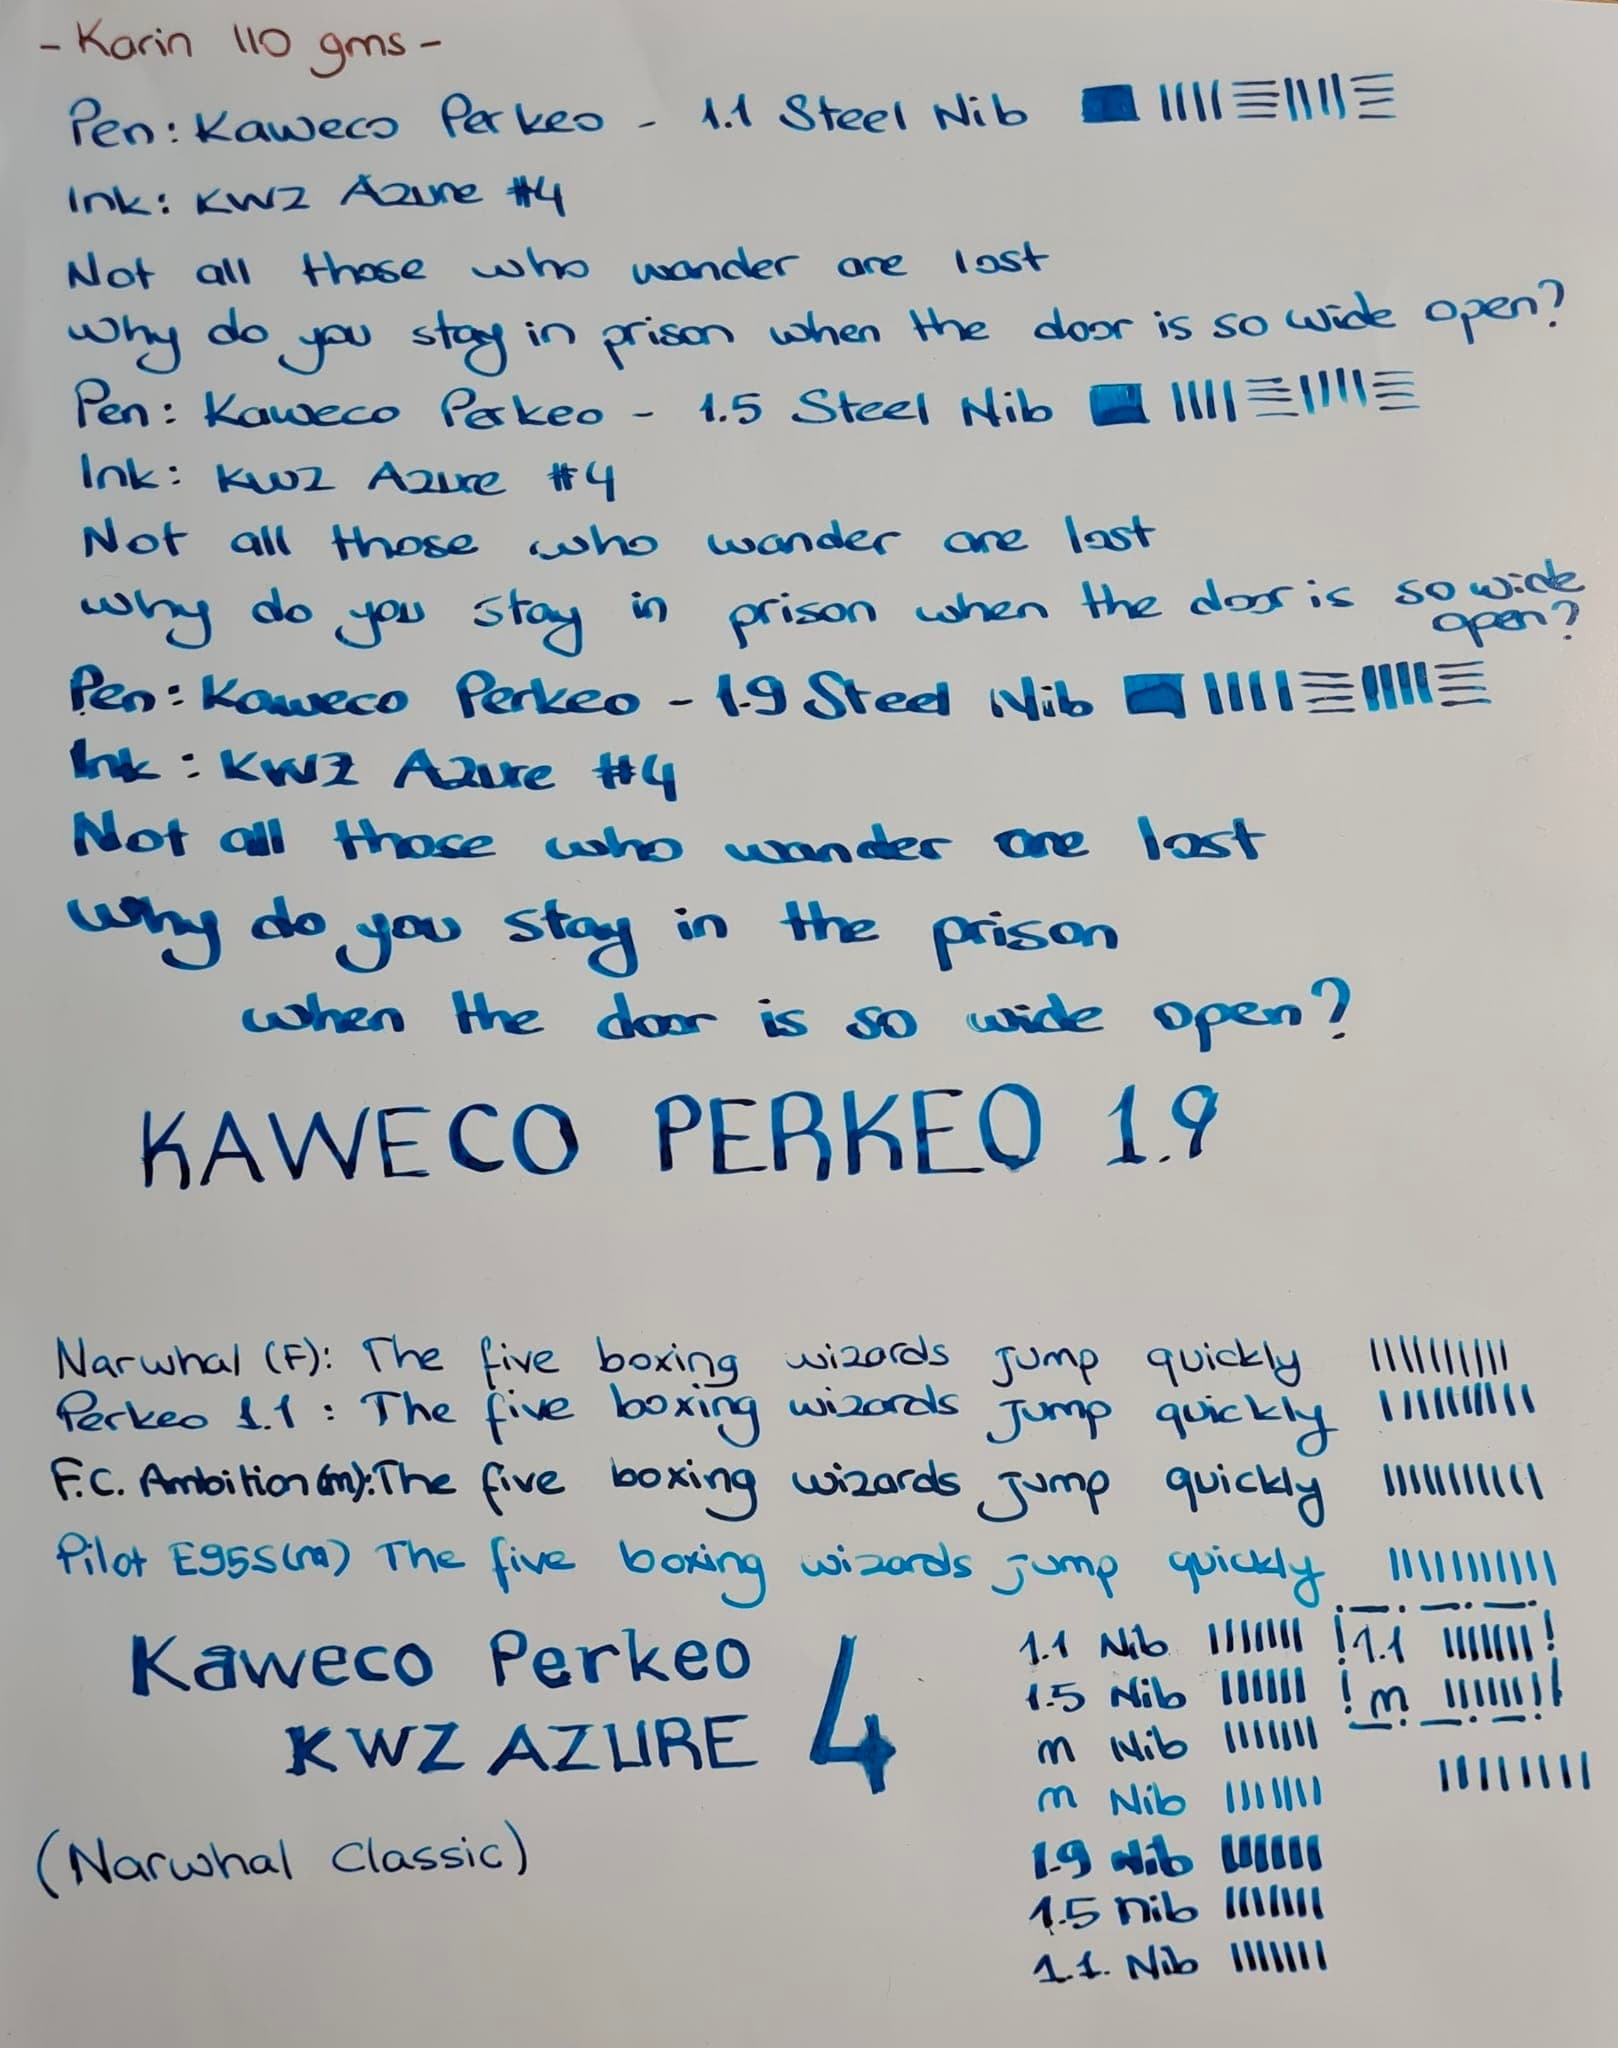 - Karin 110 gms -
Pen: Kaweco Perkeo - 1.1 Steel Nib
Ink: KWZ Azure #4
Not all those who wander are lost
Why do you stay in prison when the door is so wide open?
Pen: Kaweco Perkeo - 1.5 Steel Nib
Ink: KWZ Azure #4
Not all those who wander are lost
Why do you stay in prison when the door is so wide
open?
Pen: Kaweco Perkeo - 1.9 Steel Nib
Ink: KWZ Azure #4
Not all those who wander are lost
Why do you stay in the prison
when the door is so wide open?
KAWECO PERKEO 1.9
Narwhal (F): The five boxing wizards jump quickly
Perkeo 1.1: The five boxing wizards jump quickly
F.C. Ambition (m): The five boxing wizards jump quickly
Pilot E95S (m) The five boxing wizards jump quickly
Kaweco Perkeo
KWZ AZURE 4
(Narwhal Classic)
1.1 Nib
1.5 Nib
m Nib
m Nib
1.9 Nib
1.5 nib
1.1. Nib
1.1
m